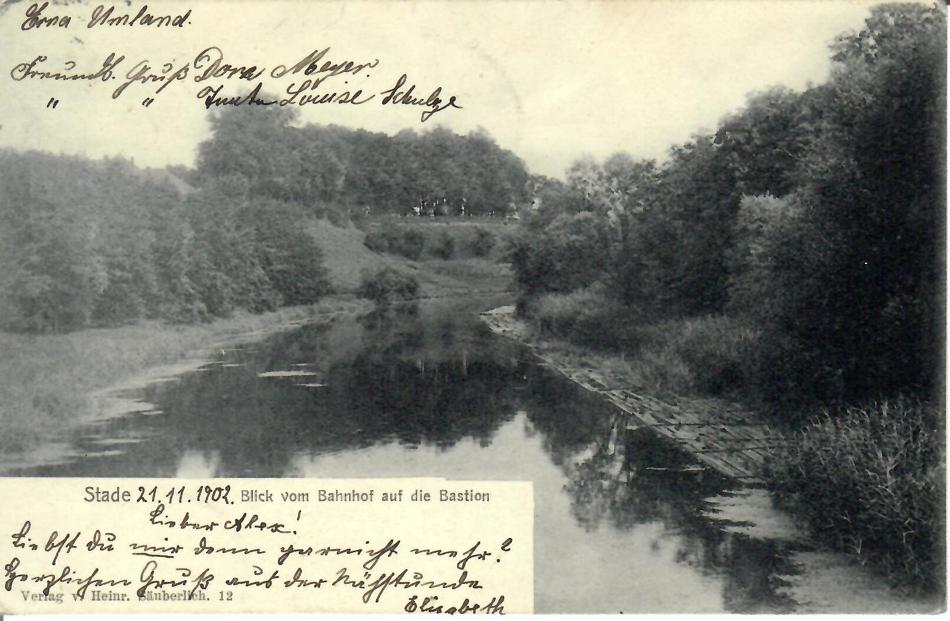 Erna Umland.
Freundl. Gruß Dora Meyer.
" " Louise Schulze
Stade 21.11.1902. Blick vom Bahnhof auf die Bastion
Lieber Alex!
Liebst du mir denn garnicht mehr?
Herzlichen Gruß aus der Nähstunde
Verlag v. Heinr. Säuberlich. 12
Elisabeth